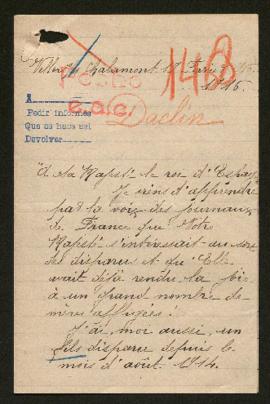 Chalamont 1916.
148
E.O.C.
Daclin
A
Pedir informes
Que se haga así
Devolver
"A sa Majesté le roi d'Espag
Je viens d'apprendre
par la voix des journaux
de France que Votre
Majesté s'intéressait au sort
des disparus et qu'Elle
avait déjà rendu la joie
à un grand nombre de
mères affligées!
J'ai, moi aussi, un
fils disparu depuis le
mois d'août 1914.